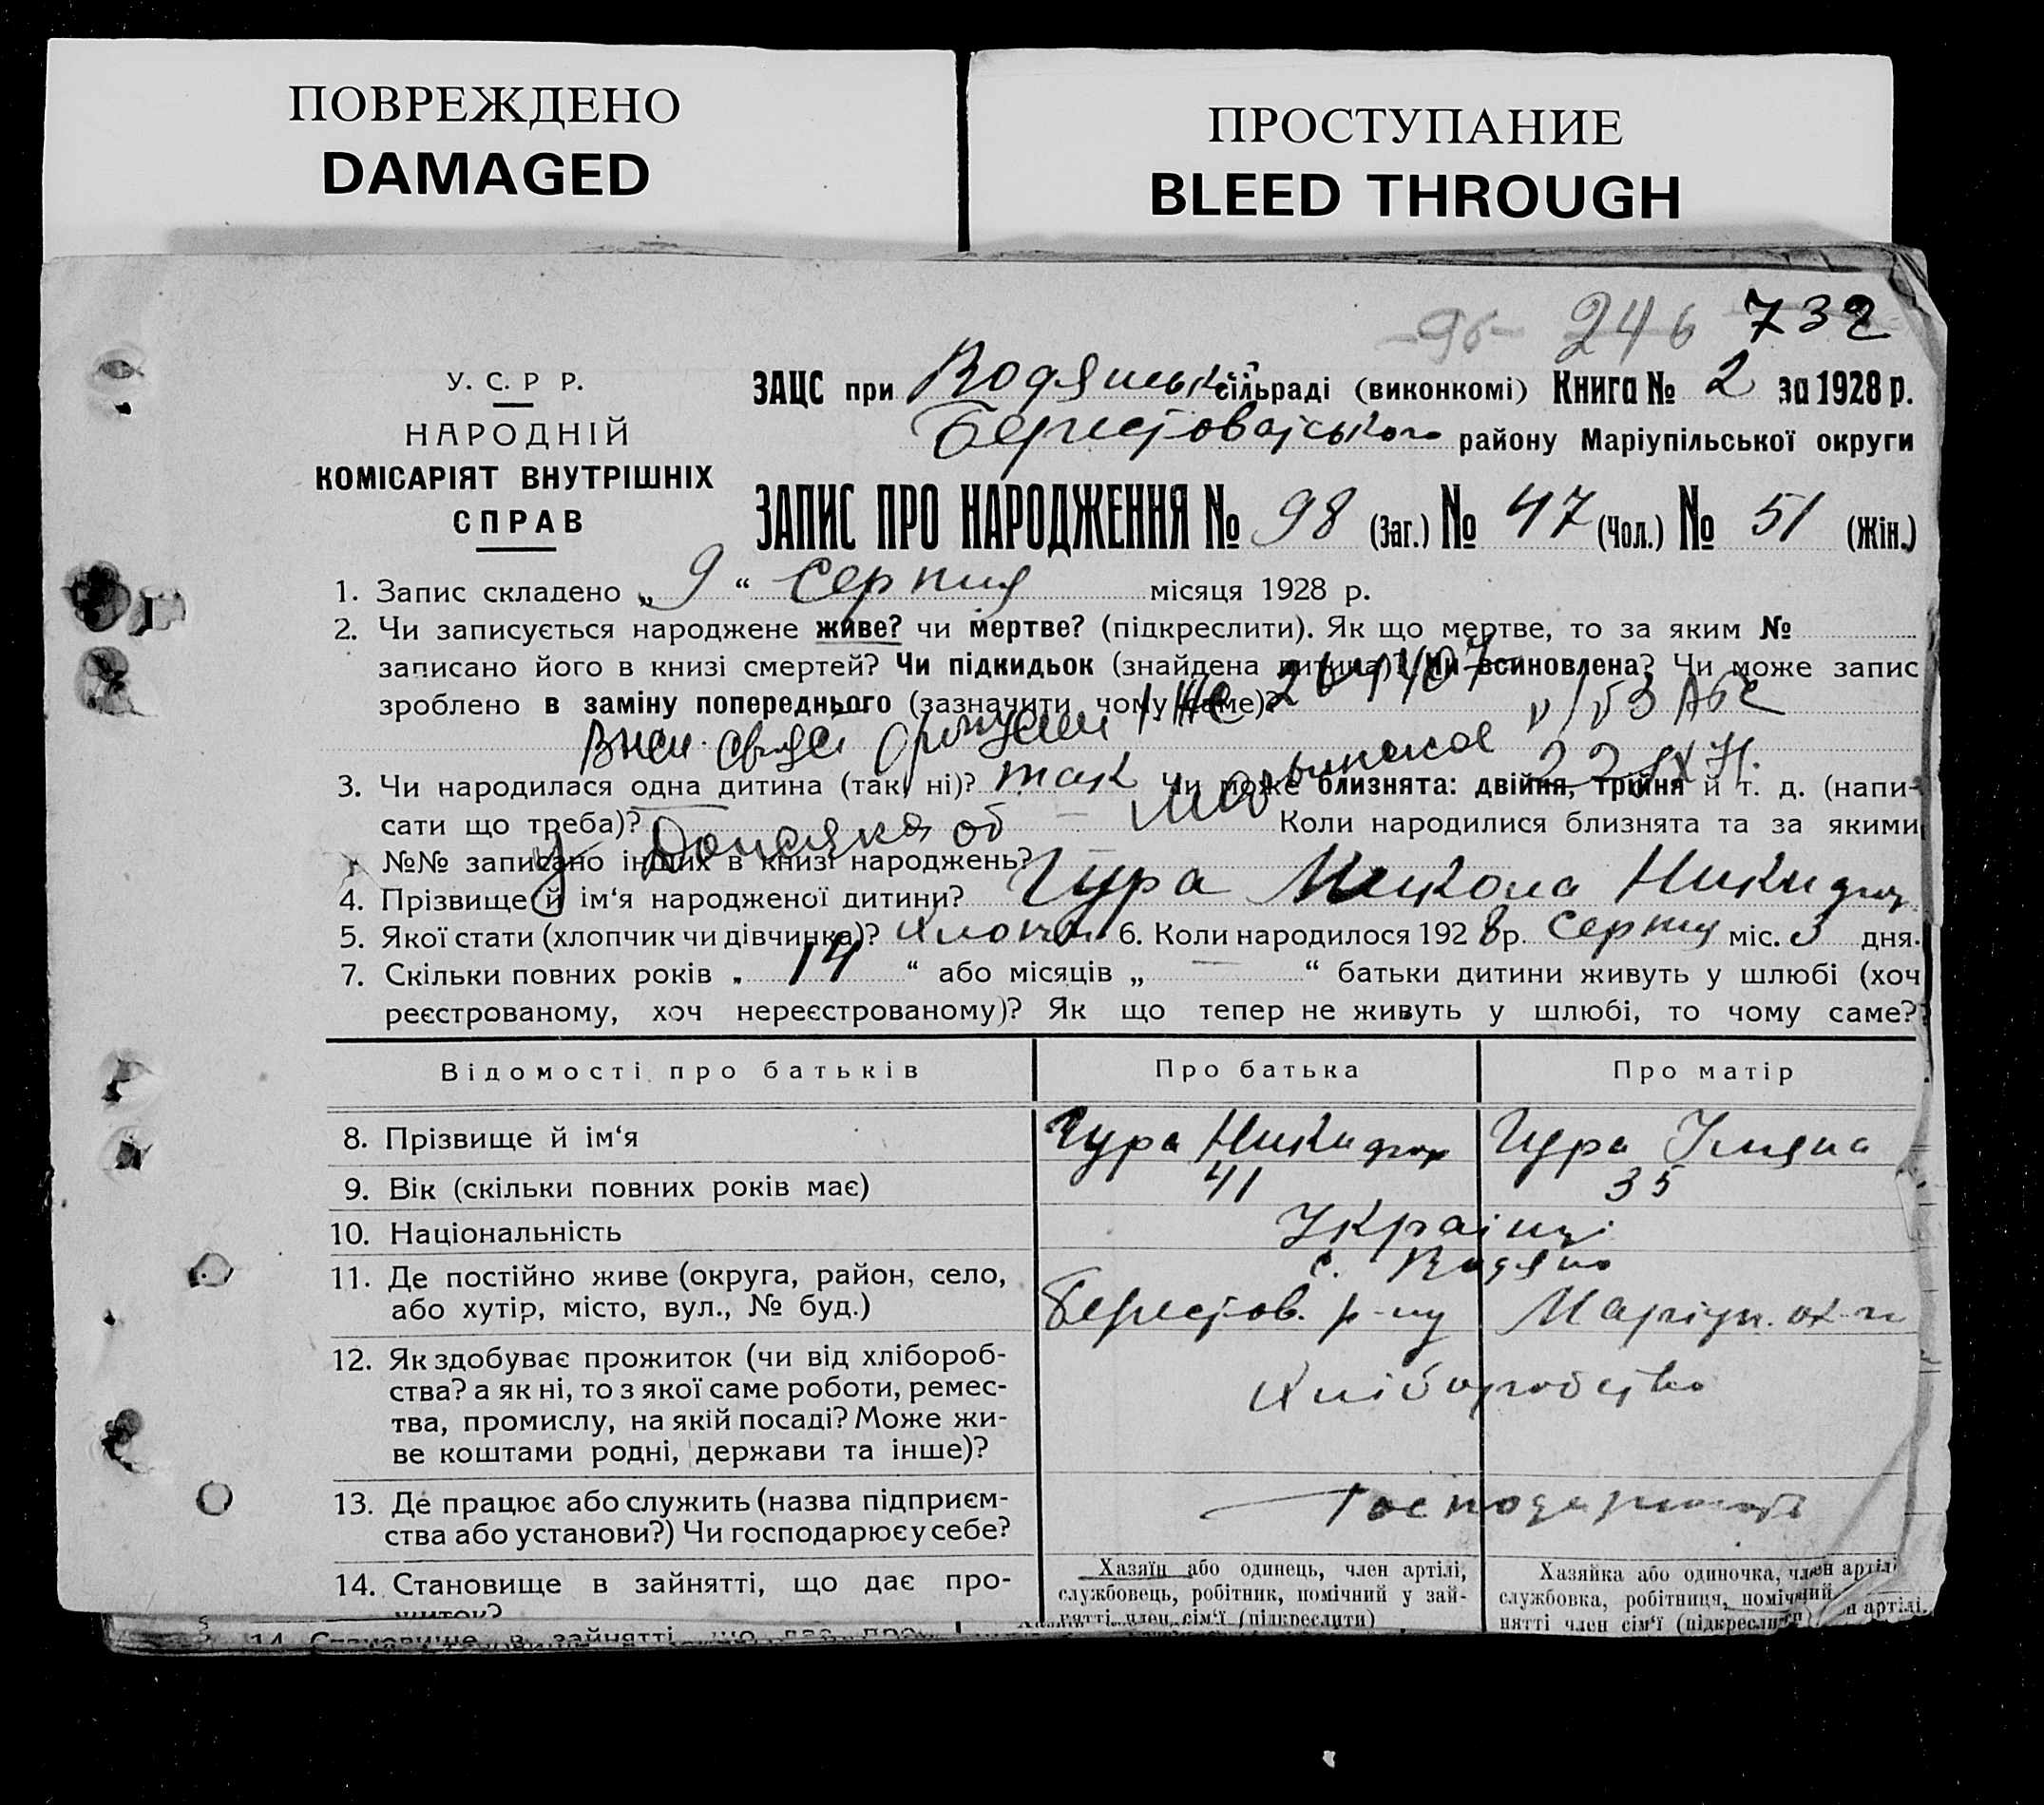 ПОВРЕЖДЕНО
DAMAGED
ПРОСТУПАНИЕ
BLEED THROUGH
96 246 732
У. С. Р Р.
НАРОДНІЙ
КОМІСАРІЯТ ВНУТРІШНІХ
СПРАВ
ЗАЦС при Водянській сільраді (виконкомі) Книга № 2 за 1928 р.
району Маріупільської округи
ЗАПИС ПРО НАРОДЖЕННЯ № 98 (Заг.) № 47 (Чол.) № 51 (Жін.)
1. Запис складено „ 9 “ Серпня місяця 1928 р.
2. Чи записується народжене живе? чи мертве? (підкреслити). Як що мертве, то за яким №
записано його в книзі смертей? Чи підкидьок (знайдена дитина)? Чи всиновлена? Чи може запис
зроблено в заміну попереднього (зазначити чому саме)?
3. Чи народилася одна дитина (так, ні)? так Чи може близнята: двійня, трійня й т. д. (напи-
сати що треба)? Коли народилися близнята та за якими
№№ записано інших в книзі народжень?
4. Прізвище й ім‘я народженої дитини? Гура Микола
5. Якої стати (хлопчик чи дівчинка)? хлопч 6. Коли народилося 192 8 р. Серпня міс. 3 дня.
7. Скільки повних років „ 14 “ або місяців „ — “ батьки дитини живуть у шлюбі (хоч
реєстрованому, хоч нереєстрованому)? Як що тепер не живуть у шлюбі, то чому саме?
Відомості про батьків Про батька Про матір
8. Прізвище й ім‘я Гура Гура
9. Вік (скільки повних років має) 41 35
10. Національність Українці
11. Де постійно живе (округа, район, село, с. Водяно
або хутір, місто, вул., № буд.) Берестов. р-ну Маріуп. ок-ги
12. Як здобуває прожиток (чи від хлібороб-
ства? а як ні, то з якої саме роботи, ремес- хліборобство
тва, промислу, на якій посаді? Може жи-
ве коштами родні, держави та інше)?
13. Де працює або служить (назва підприєм-
ства або установи?) Чи господарює у себе?
14. Становище в зайнятті, що дає про-
житок?
Хазяїн або одинець, член артілі,
службовець, робітник, помічний у зай-
нятті член сім‘ї (підкреслити)
Хазяйка або одиночка, член артілі
службовка, робітниця, помічний
нятті член сім‘ї (підкреслити)
14. Становище в зайнятті, що дає про-